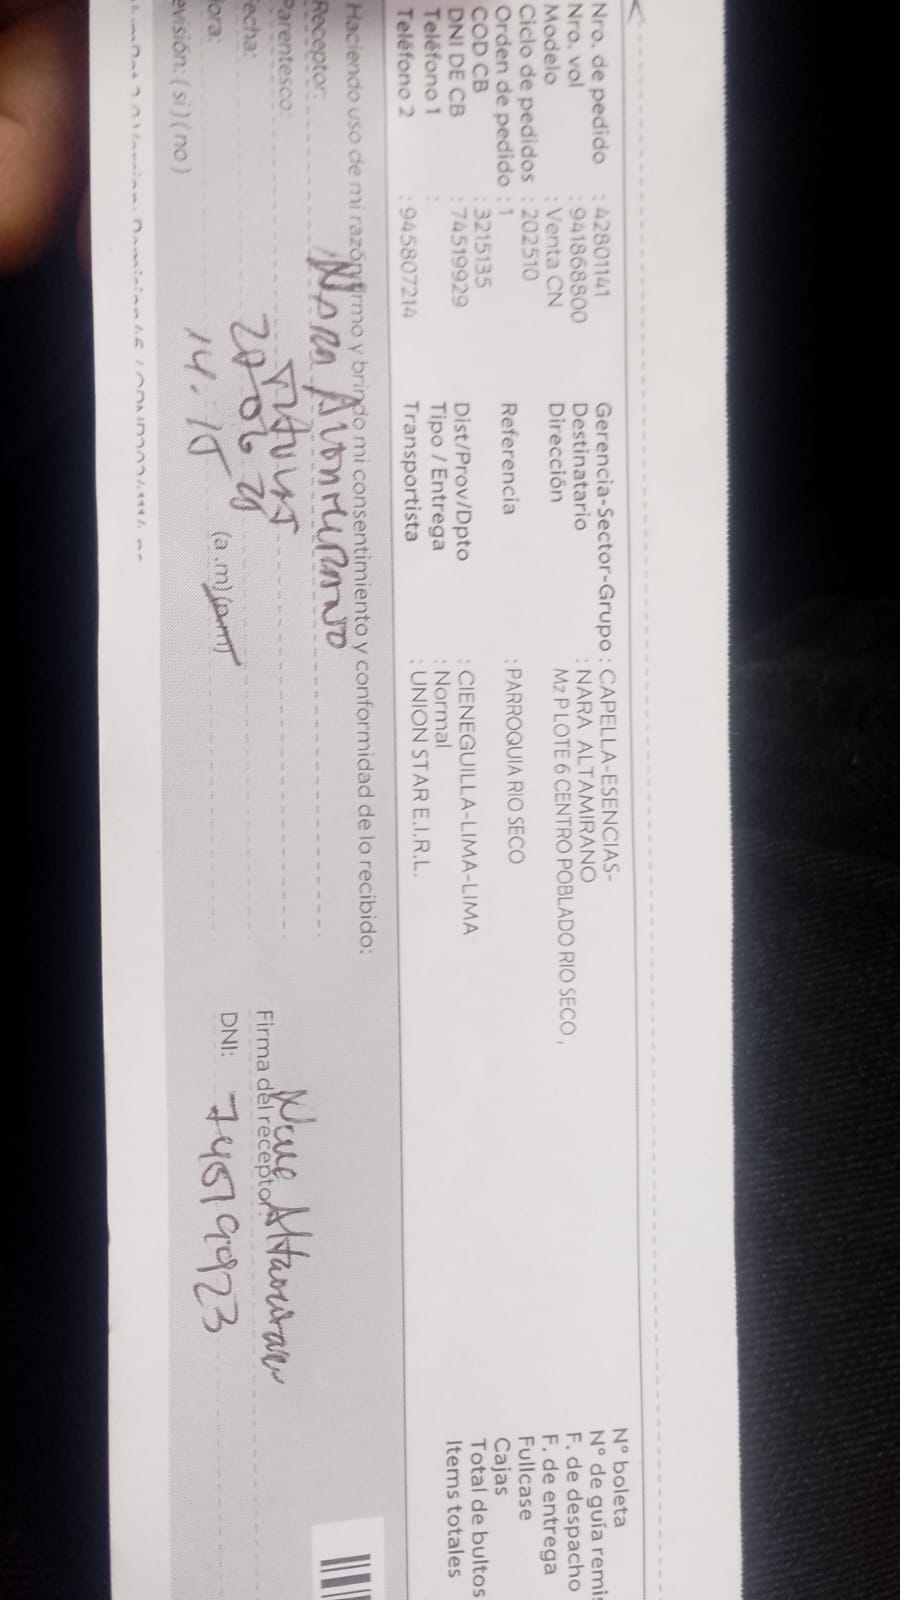 Nro. de pedido : 42801141
Nro. vol : 941868800
Modelo : Venta CN
Ciclo de pedidos : 202510
Orden de pedido : 1
COD CB : 3215135
DNI DE CB : 74519929
Teléfono 1 :
Teléfono 2 : 945807214
Gerencia-Sector-Grupo : CAPELLA-ESENCIAS-
Destinatario : NARA ALTAMIRANO
Dirección : Mz P LOTE 6 CENTRO POBLADO RIO SECO ,
Referencia : PARROQUIA RIO SECO
Dist/Prov/Dpto : CIENEGUILLA-LIMA-LIMA
Tipo / Entrega : Normal
Transportista : UNION STAR E.I.R.L.
N° boleta
N° de guía remis
F. de despacho
F. de entrega
Fullcase
Cajas
Total de bultos
Items totales
Haciendo uso de mi razón firmo y brindo mi consentimiento y conformidad de lo recibido:
Receptor: NARA
Parentesco:
echa:
ora: (a.m) (p.m)
evisión: ( si ) ( no )
Firma del receptor:
DNI: 74519923